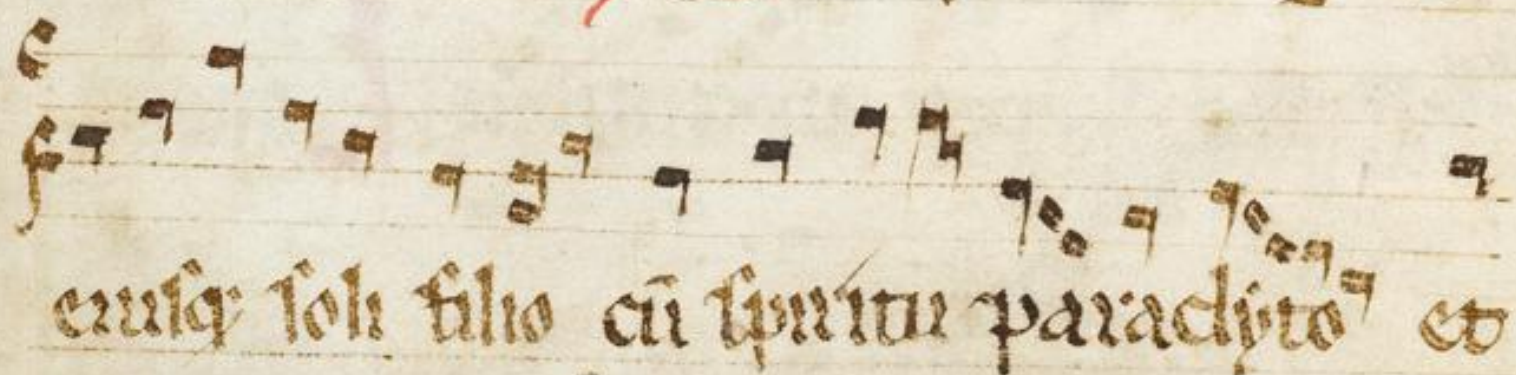 eiusq; soli filio cū spiritu paraclyto et